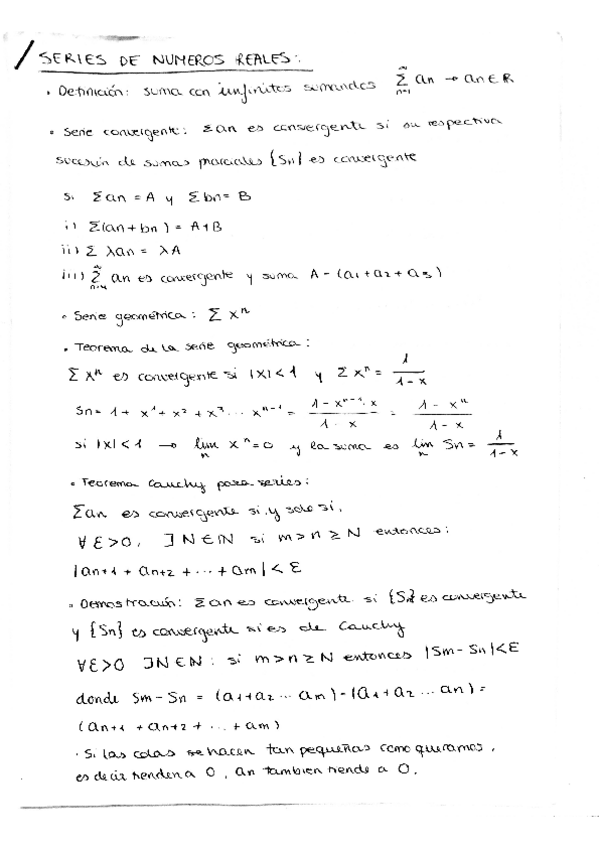 SERIES DE NUMEROS REALES:
• Definición: suma con infinitos sumandos ∑_{n=1}^{∞} an → an ∈ R
• Serie convergente: Σan es convergente si su respectiva
sucesión de sumas parciales {Sn} es convergente
Si Σan = A y Σbn = B
i) Σ(an + bn) = A+B
ii) Σ λan = λA
iii) ∑_{n=4}^{∞} an es convergente y suma A - (a1 + a2 + a3)
• Serie geométrica: Σ x^n
• Teorema de la serie geométrica:
Σ x^n es convergente si |x| < 1 y Σ x^n = 1/(1-x)
Sn = 1 + x^1 + x^2 + x^3 ... x^{n-1} = (1 - x^{n-1} · x)/(1 - x) = (1 - x^n)/(1 - x)
si |x| < 1 → lim_n x^n = 0 y la suma es lim_n Sn = 1/(1-x)
• Teorema Cauchy para series:
Σan es convergente si, y solo si,
∀ε>0, ∃N∈ℕ si m>n≥N entonces:
|an+1 + an+2 + ... + am| < ε
• Demostración: Σan es convergente si {Sn} es convergente
y {Sn} es convergente si es de Cauchy
∀ε>0 ∃N∈ℕ: si m>n≥N entonces |Sm - Sn| < ε
donde Sm - Sn = (a1 + a2 ... am) - (a1 + a2 ... an) =
(an+1 + an+2 + ... + am)
• Si las colas se hacen tan pequeñas como queramos,
es decir tienden a 0, an tambien tiende a 0.